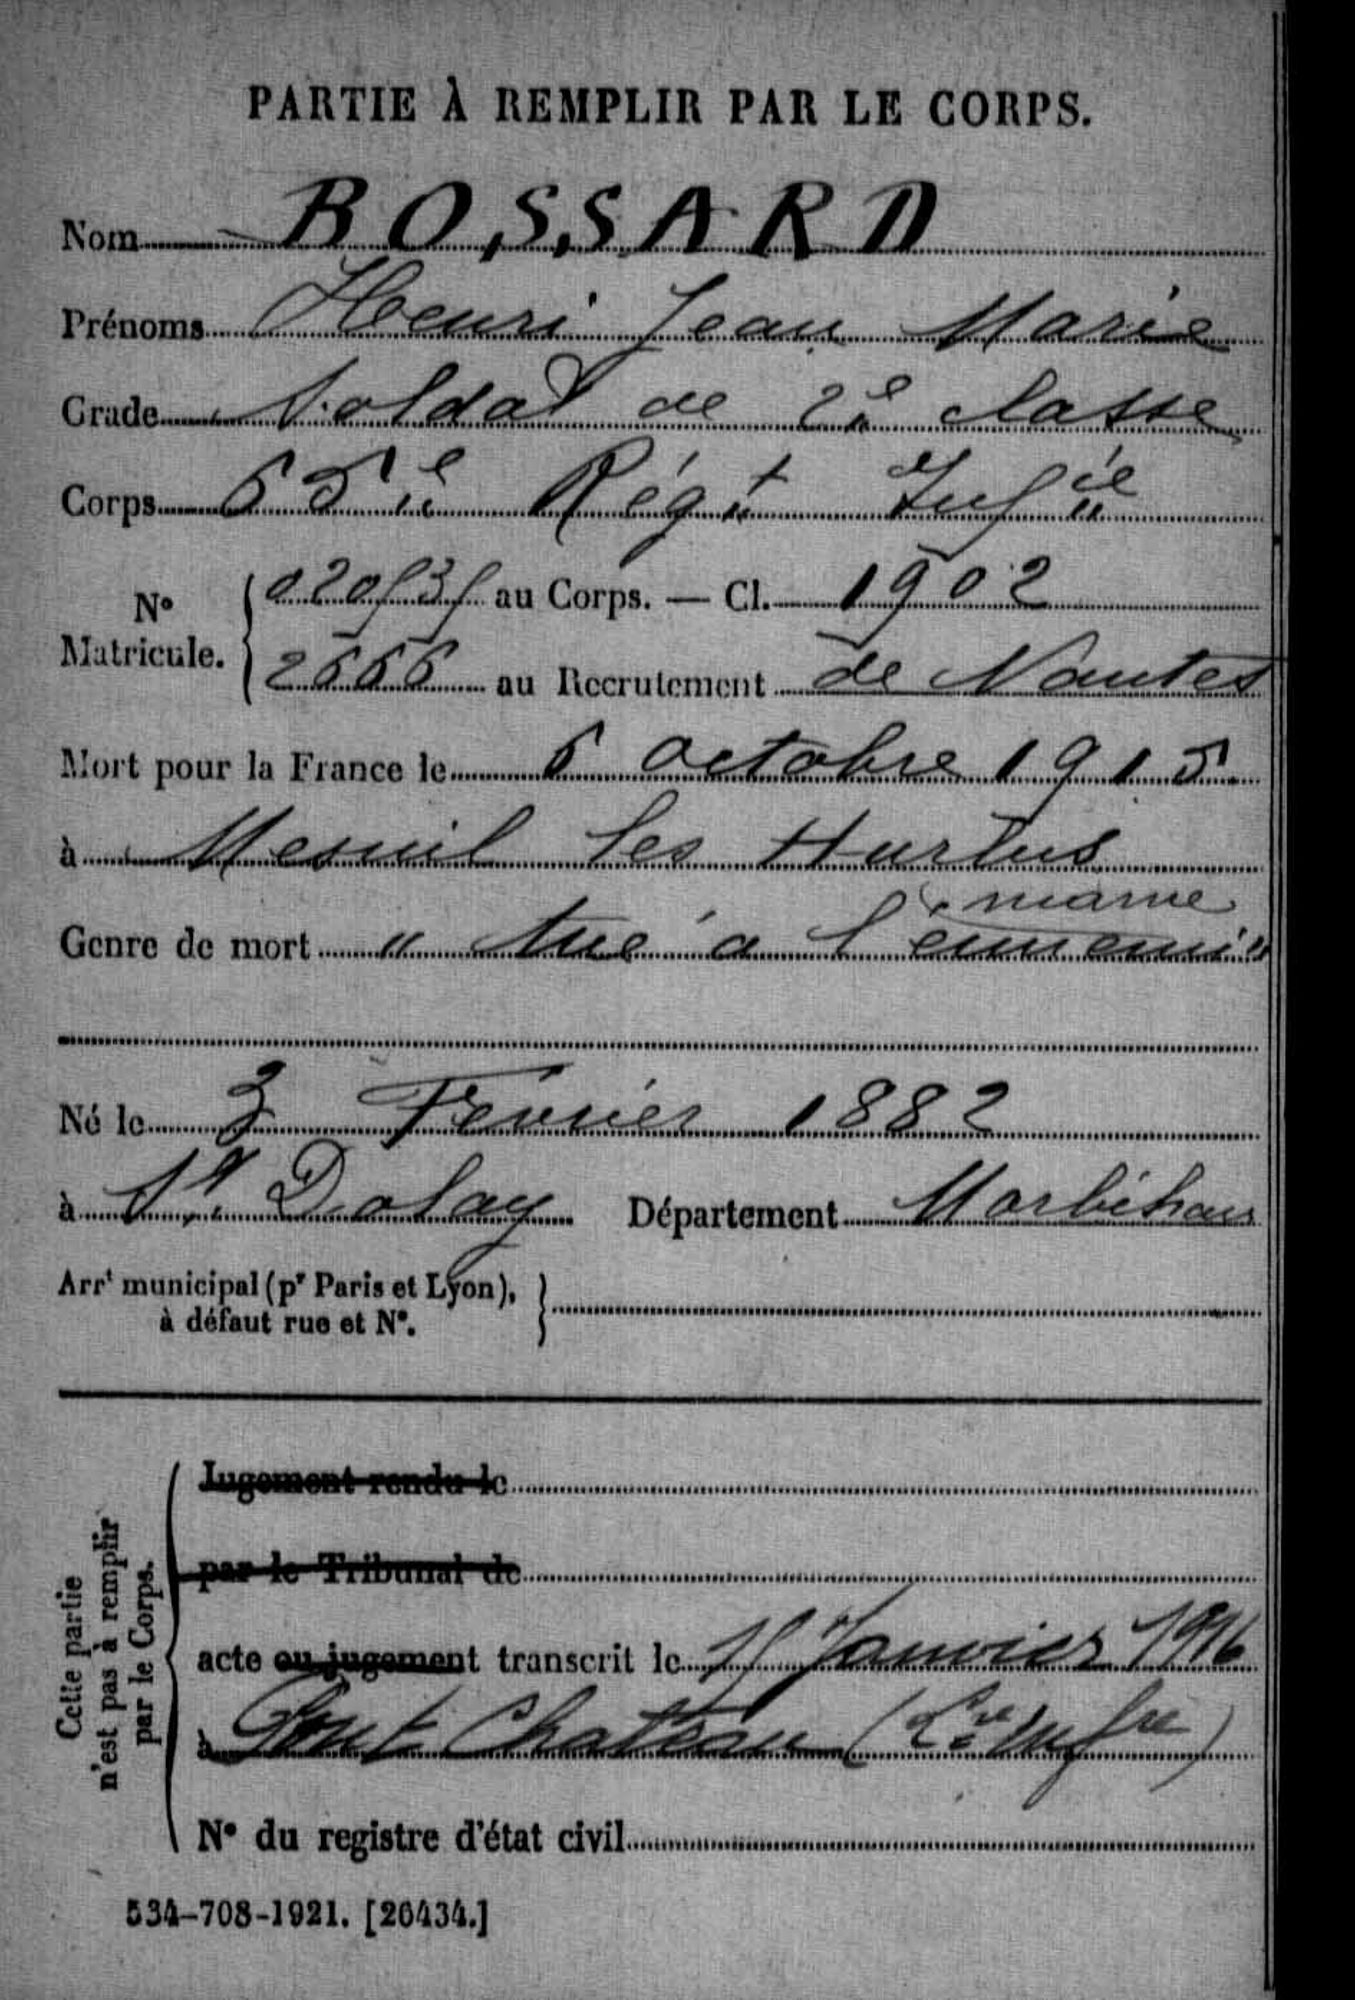 PARTIE À REMPLIR PAR LE CORPS.
Nom BOSSARD
Prénoms Henri Jean Marie
Grade Soldat de 2e classe
Corps 65e Régt Infie
No Matricule. 020535 au Corps. — Cl. 1902
2666 au Recrutement de Nantes
Mort pour la France le 6 octobre 1915
à Mesnil les Hurlus
marne
Genre de mort "tué à l'ennemi"
Né le 3 Février 1882
à St. Dolay Département Morbihan
Arrt municipal (pr Paris et Lyon),
à défaut rue et No.
Cette partie
n'est pas à remplir
par le Corps.
Jugement rendu le
par le Tribunal de
acte ou jugement transcrit le Janvier 1916
à Pont Chateau (Lre Infre)
No du registre d'état civil
534-708-1921. [26434.]